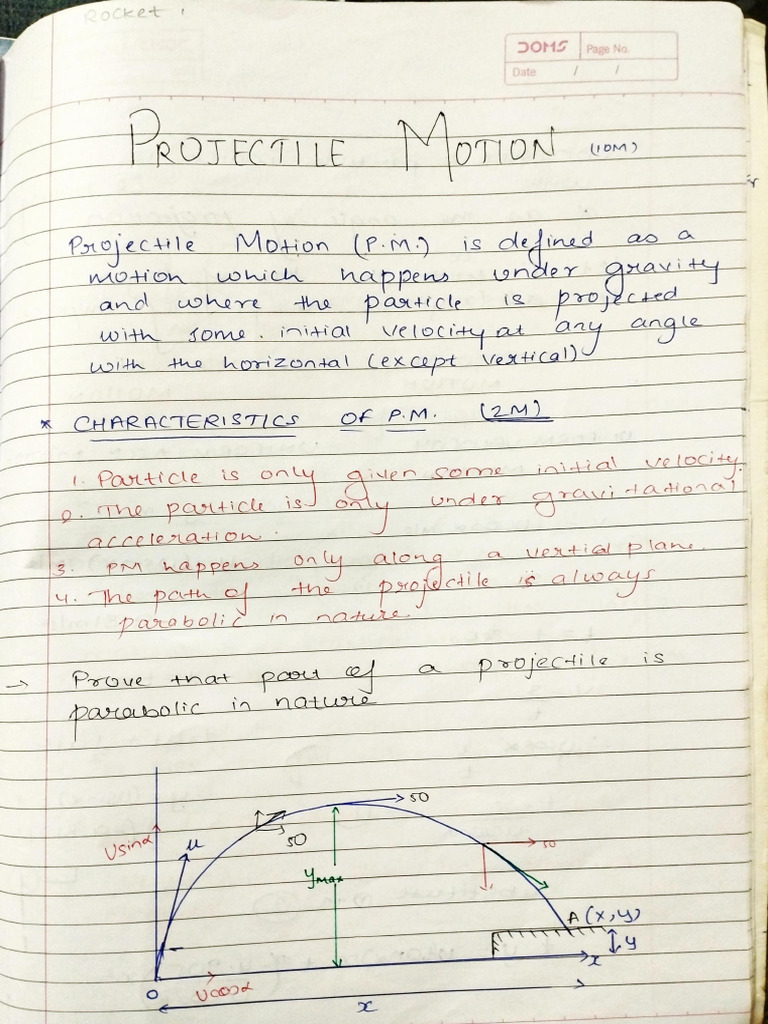 Rocket
DOMS
Page No.
Date / /
PROJECTILE MOTION (10M)
Projectile Motion (P.M.) is defined as a
motion which happens under gravity
and where the particle is projected
with some initial velocity at any angle
with the horizontal (except vertical)
* CHARACTERISTICS OF P.M. (2M)
1. Particle is only given some initial velocity.
2. The particle is only under gravitational
acceleration.
3. PM happens only along a vertial plane.
4. The path of the projectile is always
parabolic in nature.
→ Prove that part of a projectile is
parabolic in nature
50
50
Usinα
u
50
ymax
A (x, y)
y
x
O
Ucosα
x